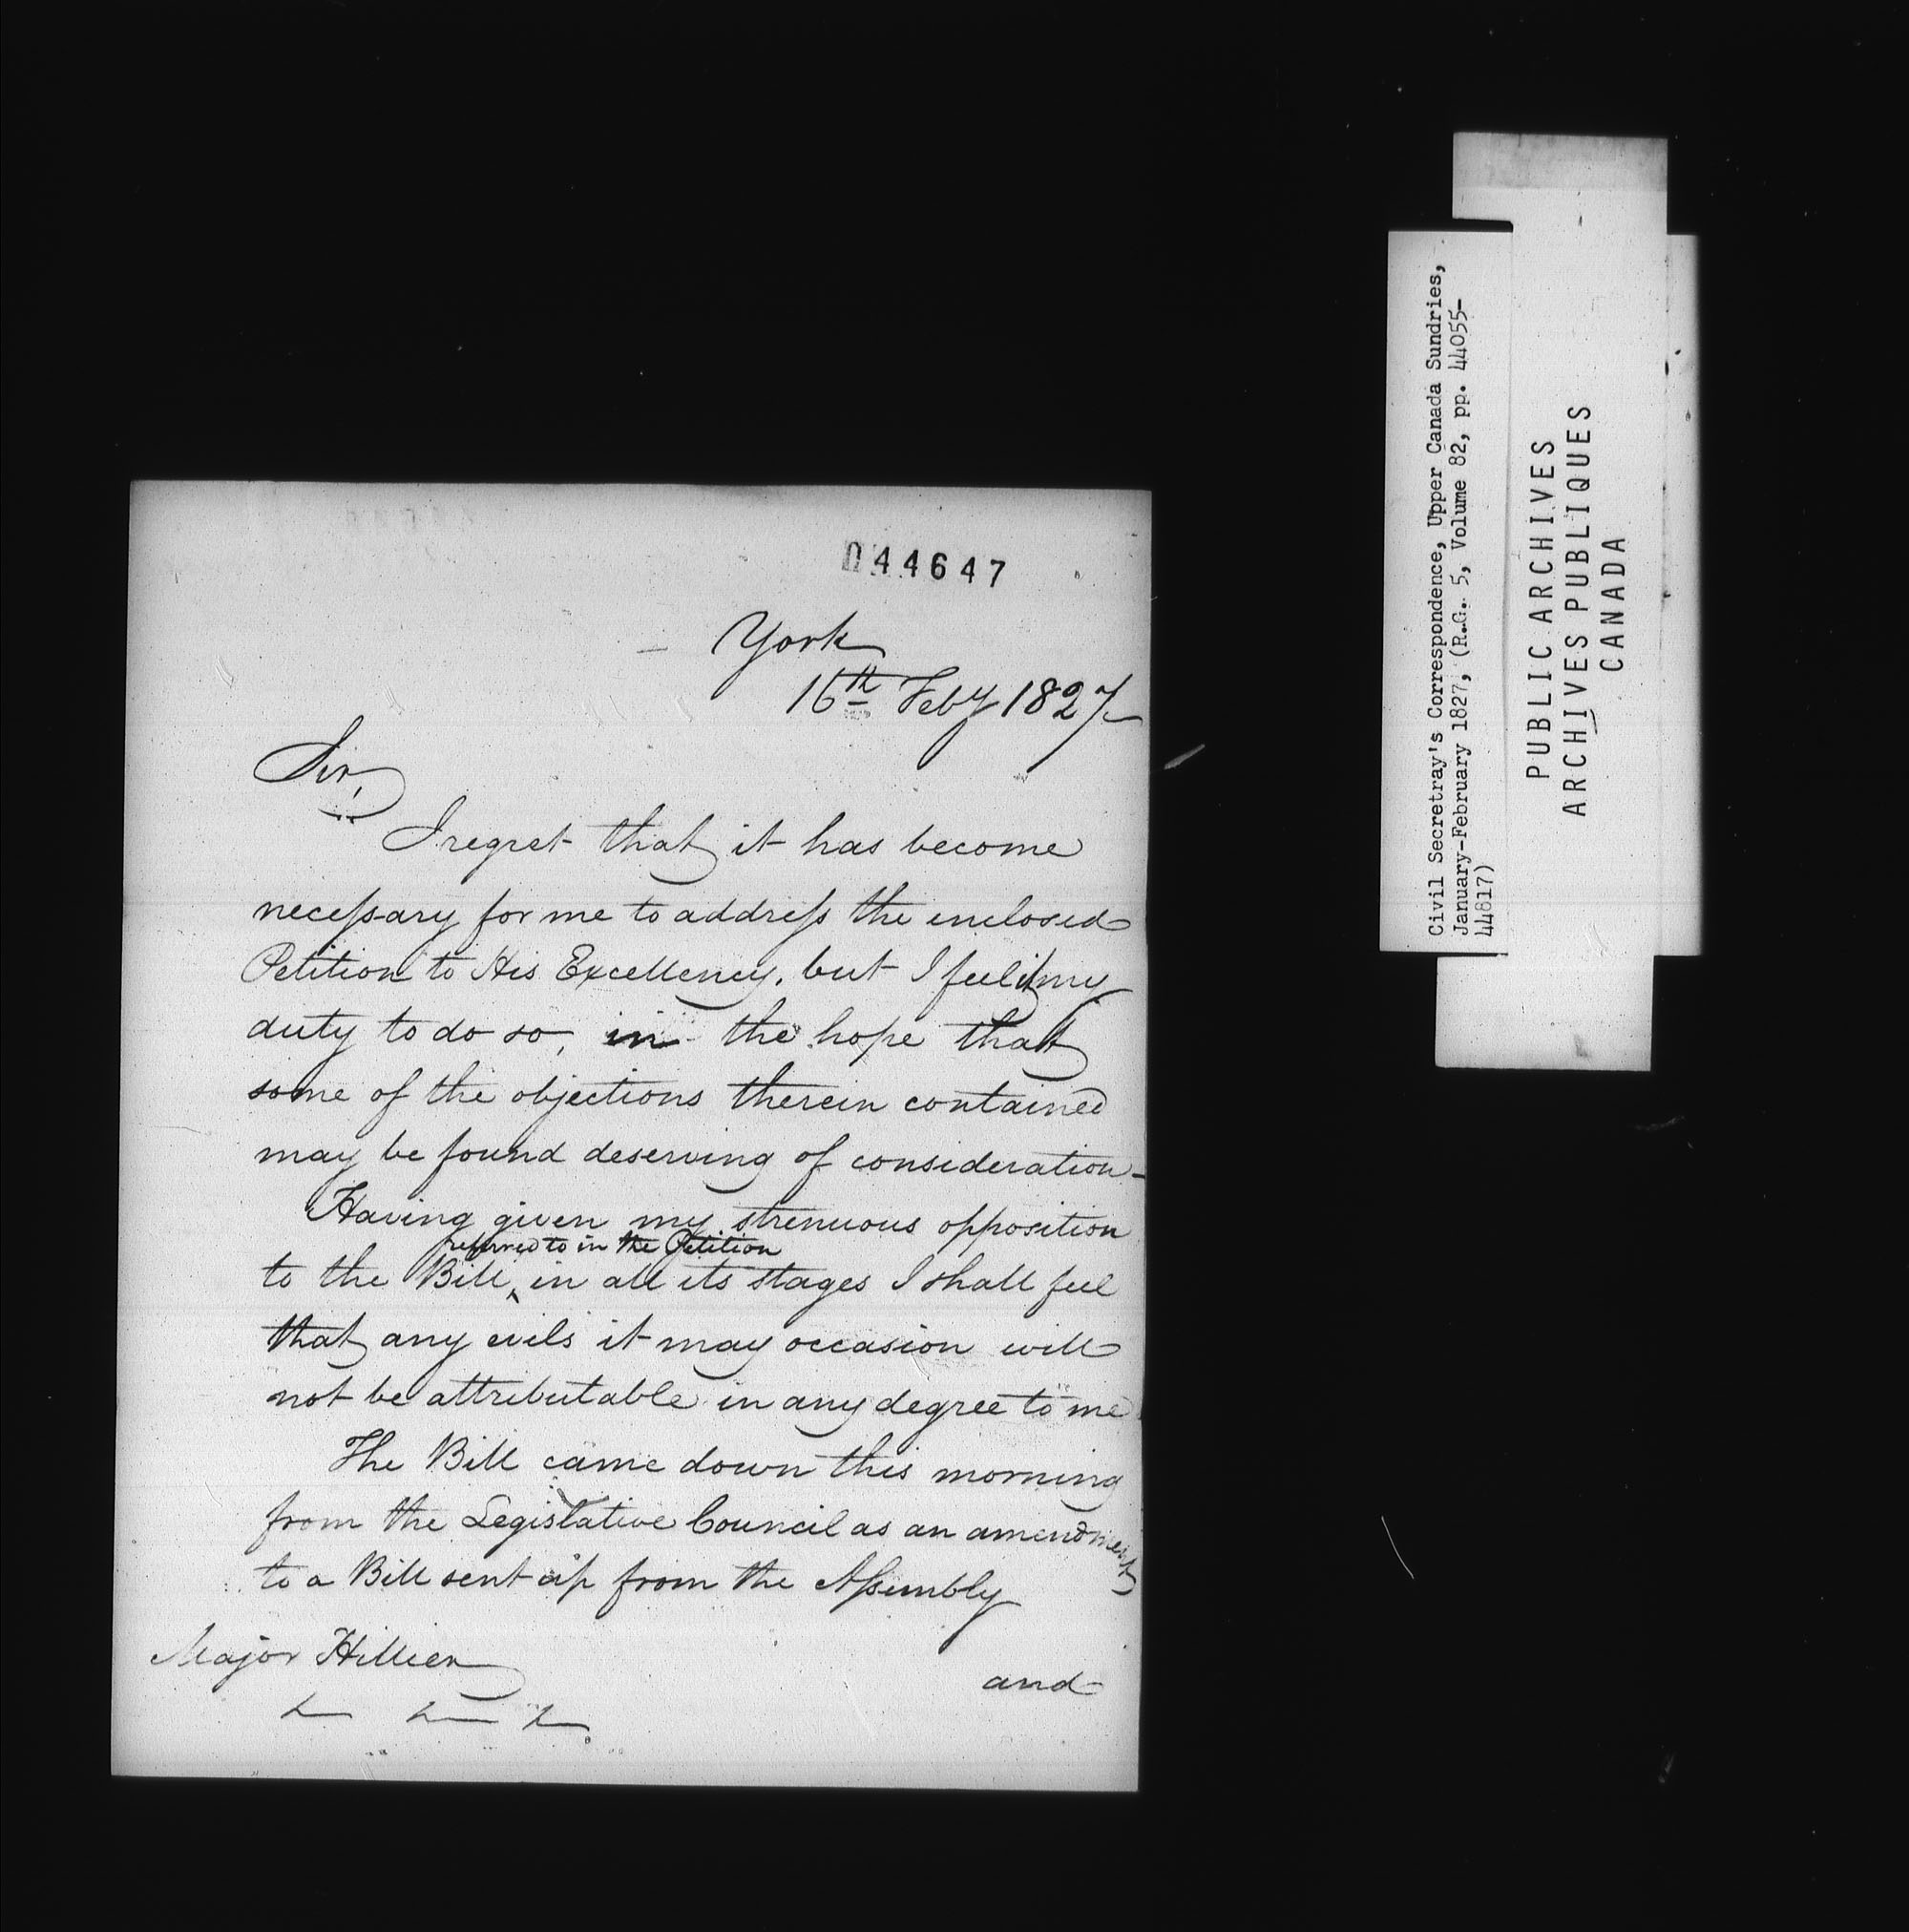 044647
York
16th Feby 1827
Sir,
I regret that it has become
necessary for me to address the enclosed
Petition to His Excellency, but I feel it my
duty to do so, in the hope that
some of the objections therein contained
may be found deserving of consideration-
Having given my strenuous opposition
referred to in the Petition
to the Bill, in all its stages I shall feel
that any evils it may occasion will
not be attributable in any degree to me
The Bill came down this morning
from the Legislative Council as an amendment
to a Bill sent up from the Assembly
Major Hillier
and
Civil Secretray's Correspondence, Upper Canada Sundries,
January-February 1827, (R.G. 5, Volume 82, pp. 44055-
44817)
PUBLIC ARCHIVES
ARCHIVES PUBLIQUES
CANADA